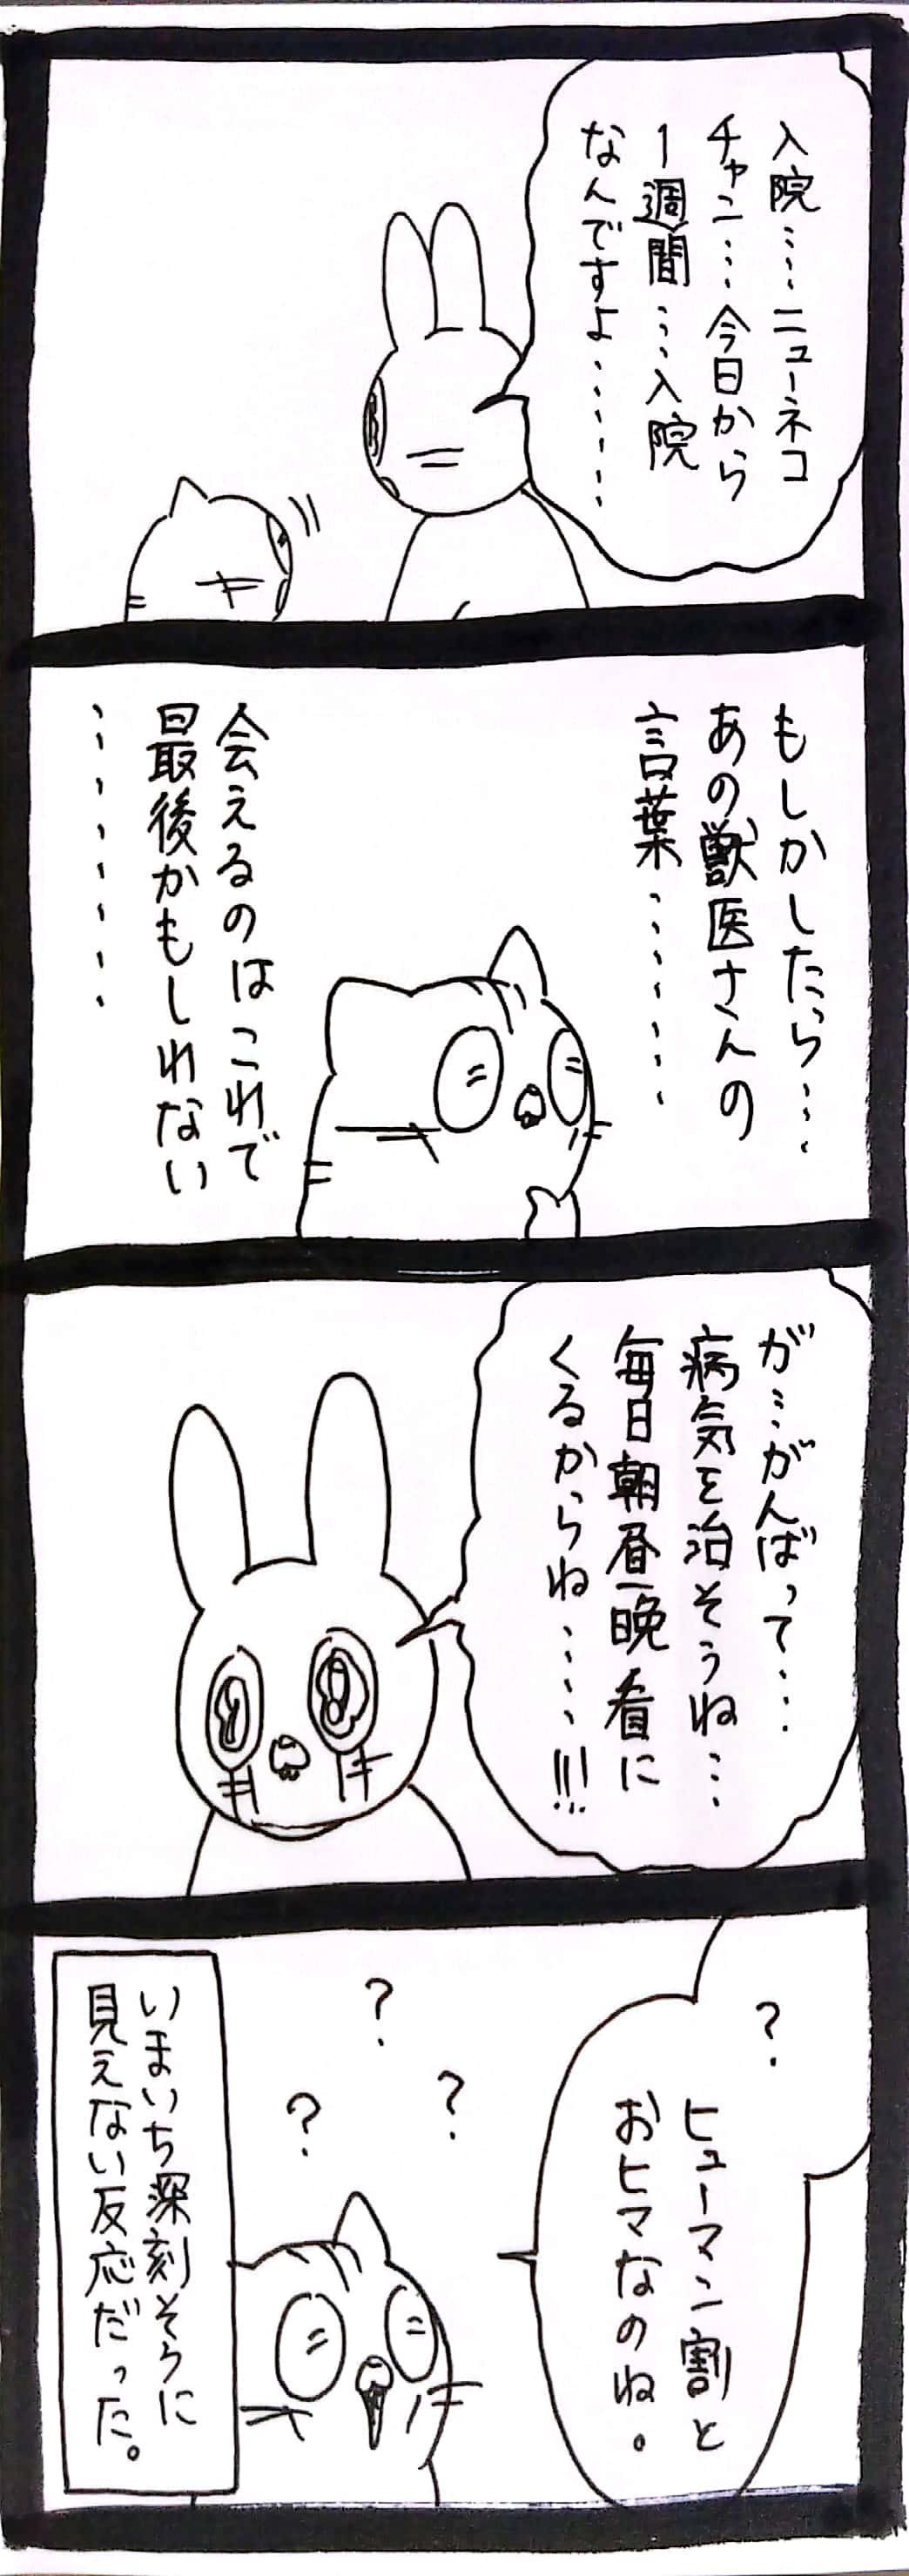 入院……ニューネコ
チャン…今日から
1週間……入院
なんですよ…………
もしかしたら……
あの獣医さんの
言葉…………
会えるのはこれで
最後かもしれない
…………
が…がんばって…
病気を治そうね…
毎日朝昼晩看に
くるからね……!!!
?
ヒューマン割と
おヒマなのね。
?
?
?
いまいち深刻そうに
見えない反応だった。